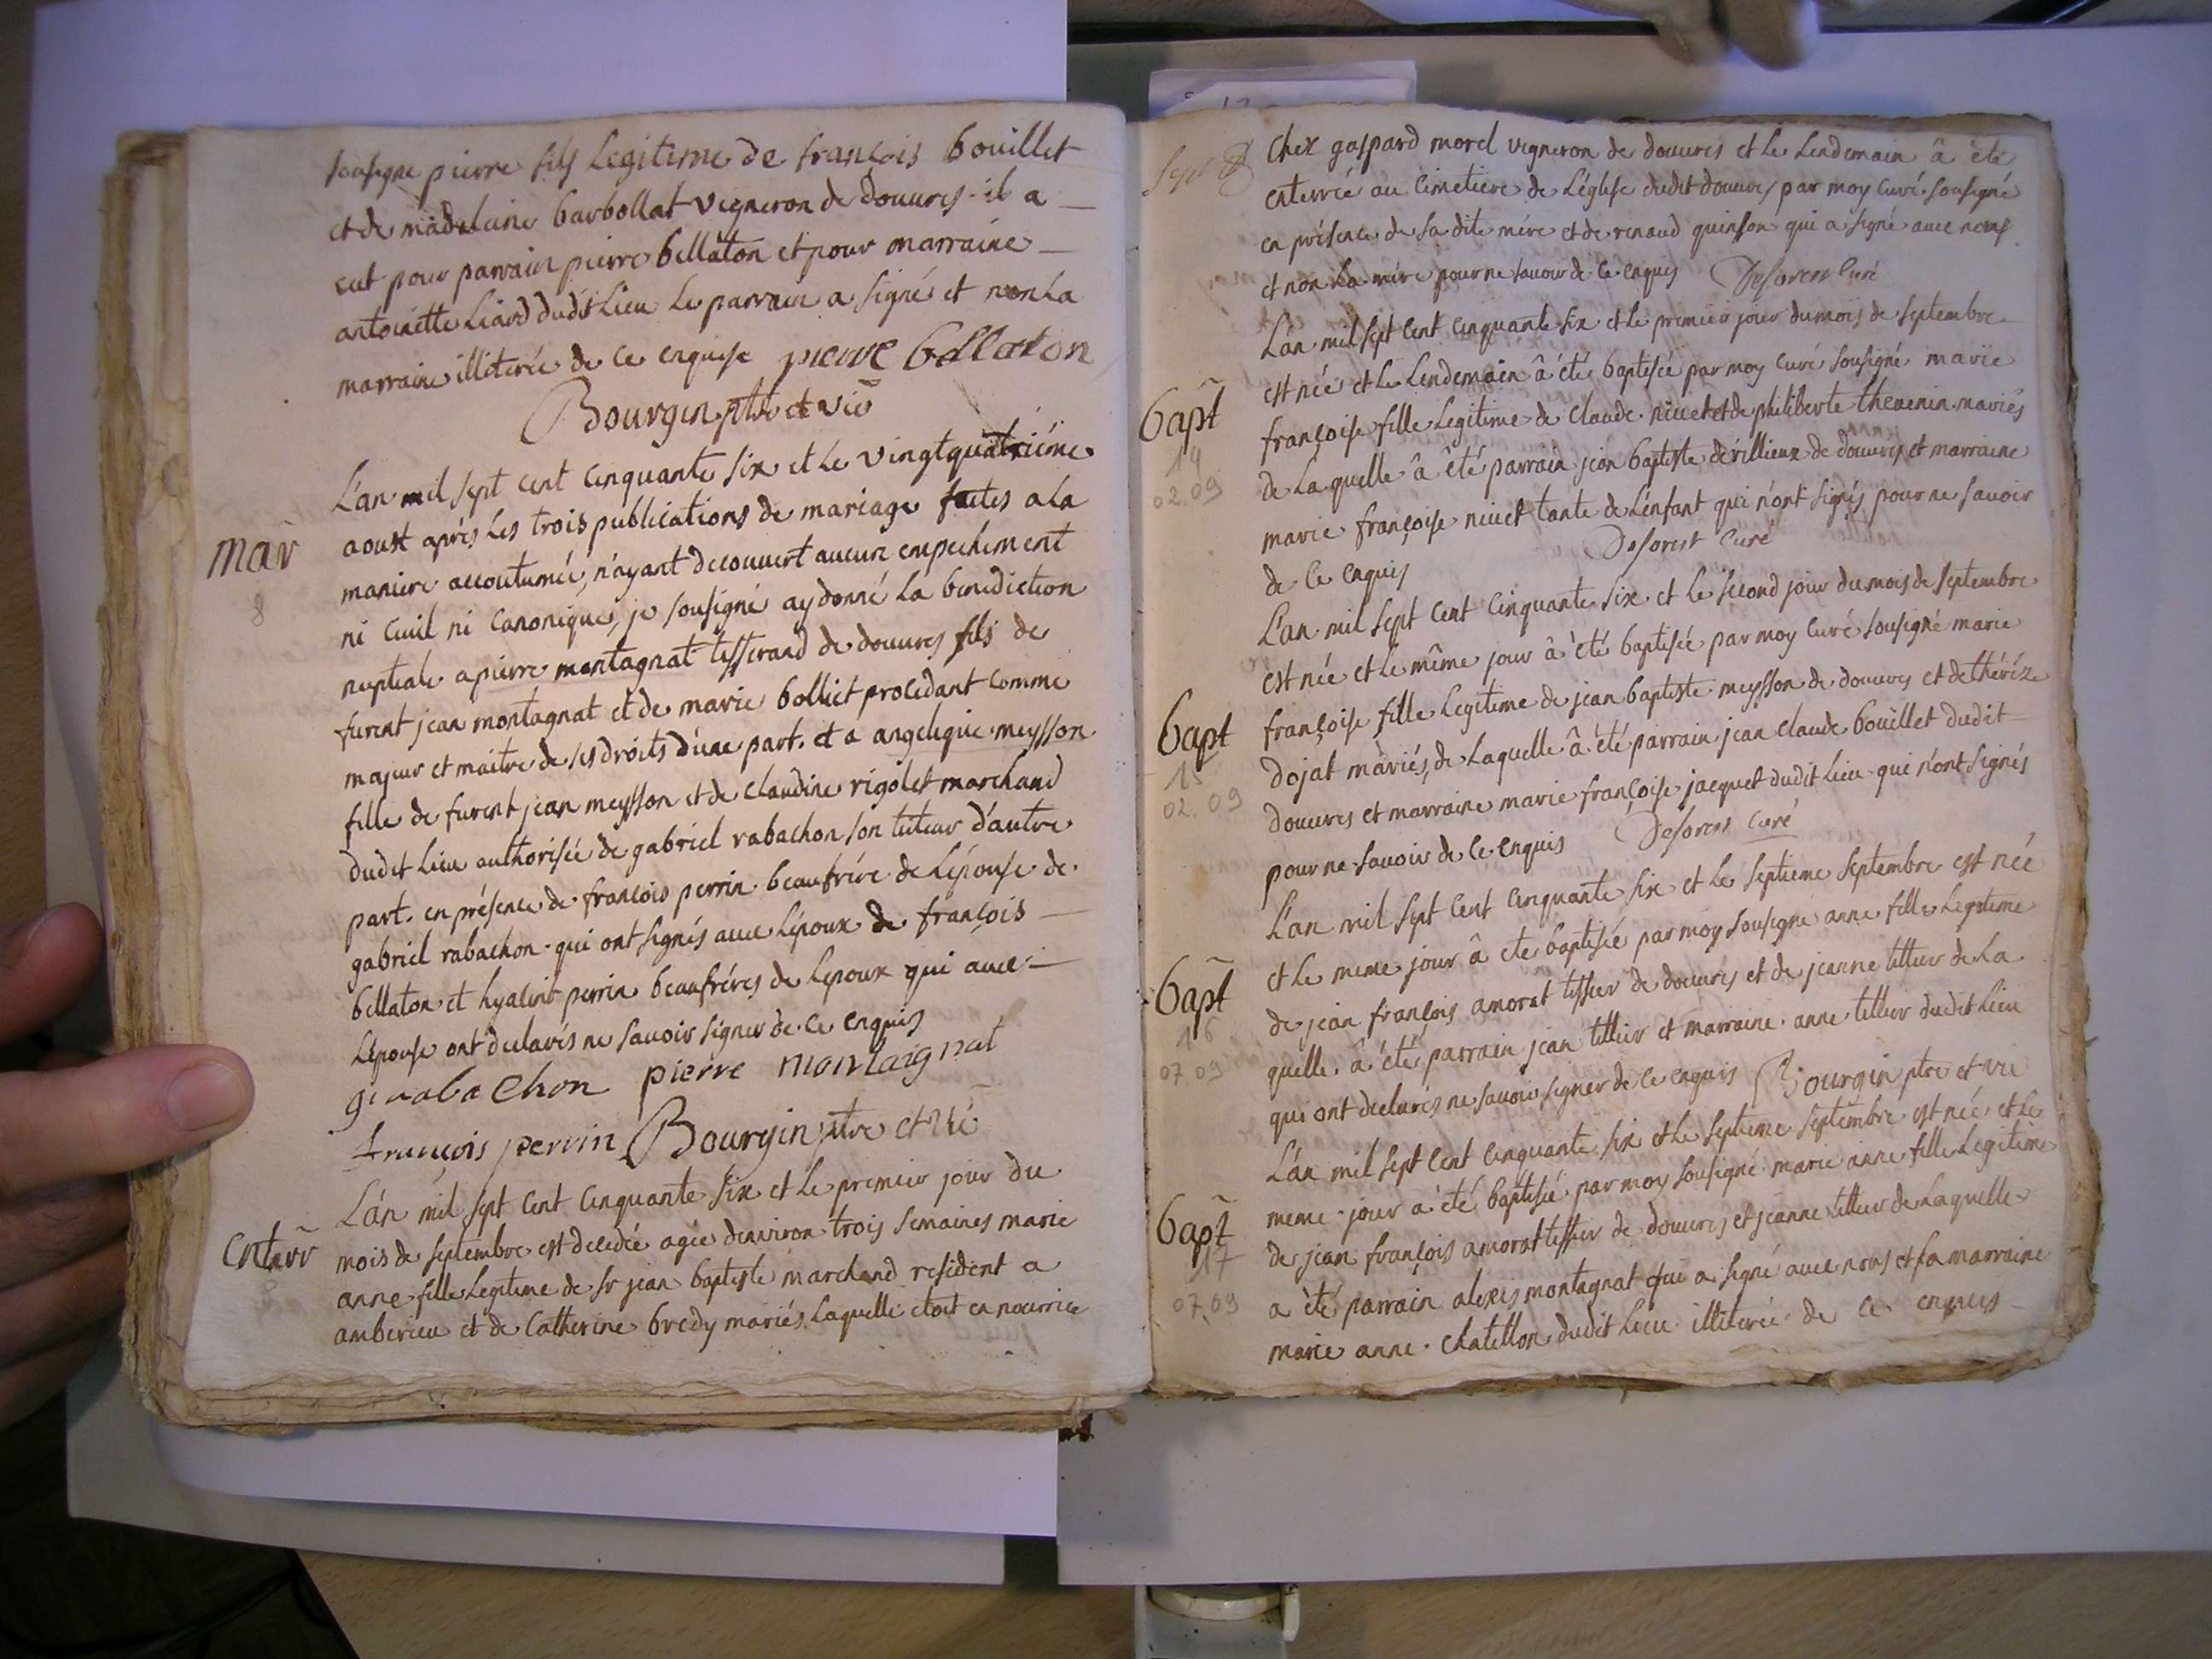 sousigne pierre fils Legitime de françois bouillet
et de madelaine barbollat vigneron de douures il a
eut pour parrain pierre bellaton et pour marraine
antoinette Liard dudit Lieu Le parrain a signé et non La
marraine illiterée de ce enquise pierre bellaton
Bourgin ptre et vic
mar
8
L'an mil sept cent cinquante six et Le vingtquatriéme
aoust aprés Les trois publications de mariage faites a La
maniere accoutumée, n'ayant decouuert aucun empechement
ni ciuil ni canonique, je sousigné ay donné La benediction
nuptiale a pierre montagnat tisserand de douures fils de
furent jean montagnat et de marie bolliet procedant comme
majeur et maitre de ses droits d'une part. et a angelique meysson
fille de furent jean meysson et de claudine rigolet marchand
dudit Lieu authorisée de gabriel rabachon son tuteur d'autre
part. en présence de françois perrin beaufrére de L'épouse de
gabriel rabachon qui ont signés auec L'époux de françois
bellaton et hyacint perrin beaufréres de Lepoux qui auec
L'épouse ont declarés ne sauoir signer de ce enquis
g rabachon pierre montaignat
françois perrin Bourgin ptre et vic
enterr
8
L'an mil sept cent cinquante six et Le premier jour du
mois de septembre est decedée agée denuiron trois semaines marie
anne fille Legitime de sr jean baptiste marchand resident a
amberieu et de Catherine bredy mariés Laquelle etoit en nourrice
sept
Chex gaspard morel vigneron de douures et Le Lendemain â été
enterrée au cimetiere de L'église dudit douures par moy curé sousigné
en présence de sa dite mére et de renaud quinson qui a signé auec nous
et non La mére pour ne sauoir de ce enquis Deforest Curé
bapt
14
02.09
L'an mil sept cent cinquante six et le premier jour du mois de septembre
est née et Le Lendemain â été baptisée par moy curé sousigné marie
françoise fille Legitime de claude niuet et de philiberte theuenin mariés
de Laquelle â été parrain jean baptiste deuillieux de douures et marraine
marie françoise niuet tante de L'enfant qui n'ont signés pour ne sauoir
de ce enquis Deforest Curé
bapt
15
02.09
L'an mil sept cent cinquante six et Le second jour du mois de septembre
est née et Le même jour â été baptisée par moy curé sousigné marie
françoise fille Legitime de jean baptiste meysson de douures et de thérèze
dojat mariés, de Laquelle â été parrain jean claude bouillet dudit
douures et marraine marie françoise jacquet dudit Lieu qui n'ont signés
pour ne sauoir de ce enquis Deforest Curé
bapt
16
07.09
L'an mil sept cent cinquante six et Le septieme septembre est née
et Le meme jour â ete baptisée par moy sousigné anne fille Legitime
de jean françois amorat tissier de douures et de jeanne tillier de La
quelle â été parrain jean tillier et marraine anne tillier dudit Lieu
qui ont declarés ne sauoir signer de ce enquis Bourgin ptre et vic
bapt
17
07.09
L'an mil sept cent cinquante six et Le septieme septembre est née et Le
meme jour a été baptisée par moy sousigné marie anne fille Legitime
de jean françois amorat tissier de douures et jeanne tillier de Laquelle
a été parrain alexis montagnat qui a signé auec nous et La marraine
marie anne chatillon dudit Lieu illiterée de ce enquis